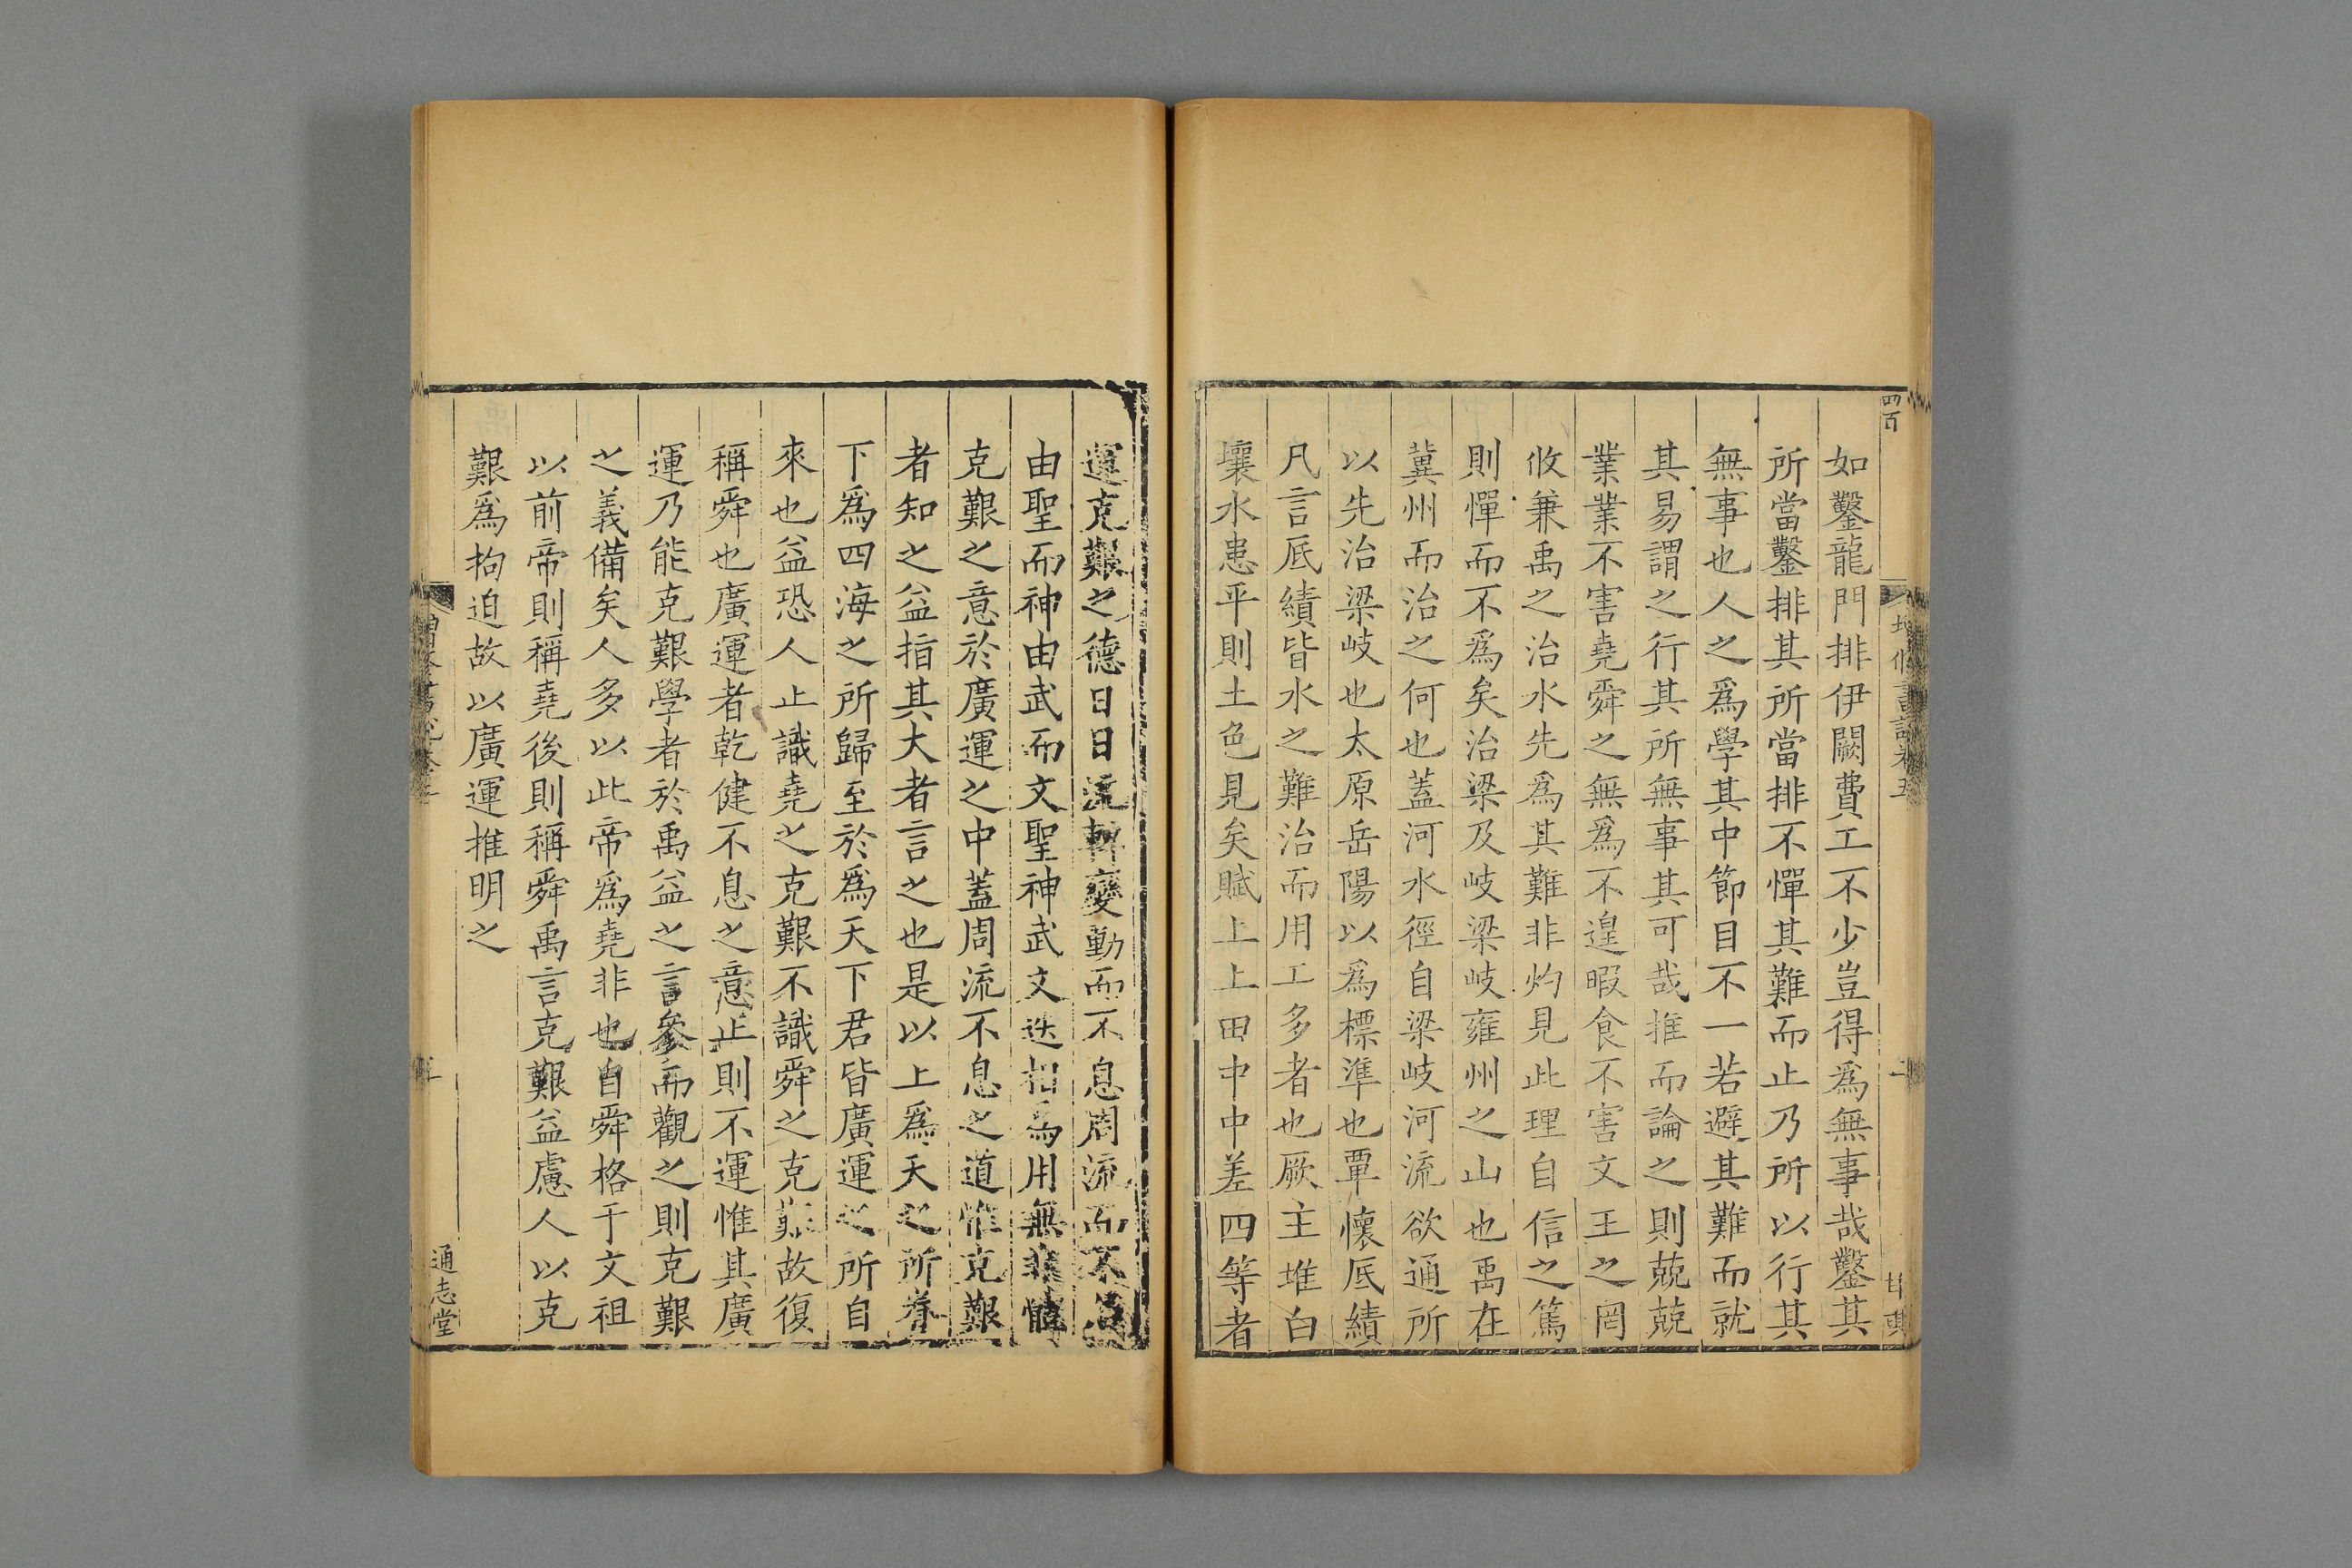 四百
如鑿龍門排伊闕費工不少豈得爲無事哉鑿其
所當鑿排其所當排不憚其難而止乃所以行其
無事也人之爲學其中節目不一若避其難而就
其易謂之行其所無事其可哉推而論之則兢兢
業業不害堯舜之無爲不遑暇食不害文王之罔
攸兼禹之治水先爲其難非灼見此理自信之篤
則憚而不爲矣治梁及岐梁岐雍州之山也禹在
冀州而治之何也蓋河水徑自梁岐河流欲通所
以先治梁岐也太原岳陽以爲標準也覃懷厎績
凡言厎績皆水之難治而用工多者也厥土惟白
壤水患平則土色見矣賦上上田中中差四等者
運克艱之德日日流轉變動而不息周流而不
由聖而神由武而文聖神武文迭相爲用無非
克艱之意於廣運之中蓋周流不息之道惟克艱
者知之益指其大者言之也是以上爲天之所眷
下爲四海之所歸至於爲天下君皆廣運之所自
來也益恐人止識堯之克艱不識舜之克艱故復
稱舜也廣運者乾健不息之意止則不運惟其廣
運乃能克艱學者於禹益之言參而觀之則克艱
之義備矣人多以此帝爲堯非也自舜格于文祖
以前帝則稱堯後則稱舜禹言克艱益慮人以克
艱爲拘迫故以廣運推明之
通志堂